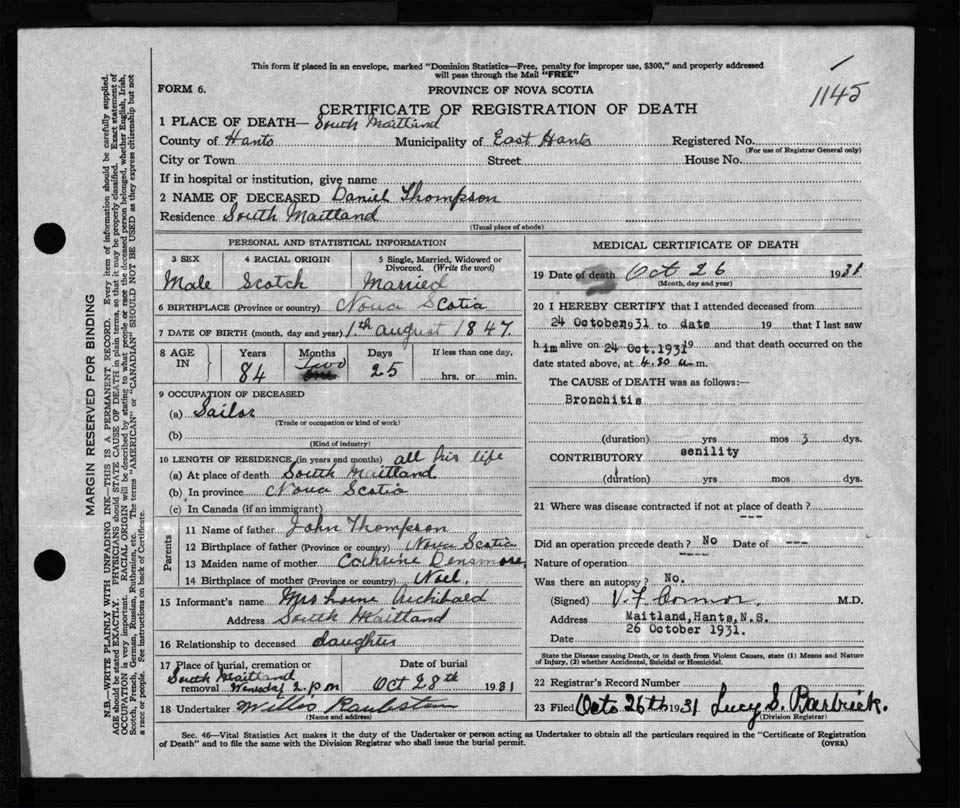 This form if placed in an envelope, marked "Dominion Statistics—Free, penalty for improper use, $300," and properly addressed
will pass through the Mail "FREE"
1145
FORM 6.
PROVINCE OF NOVA SCOTIA
CERTIFICATE OF REGISTRATION OF DEATH
1 PLACE OF DEATH— South Maitland
County of Hants Municipality of East Hants Registered No.
(For use of Registrar General only)
City or Town Street House No.
If in hospital or institution, give name
2 NAME OF DECEASED Daniel Thompson
Residence South Maitland
(Usual place of abode)
PERSONAL AND STATISTICAL INFORMATION
3 SEX 4 RACIAL ORIGIN 5 Single, Married, Widowed or
Divorced. (Write the word)
Male Scotch Married
6 BIRTHPLACE (Province or country) Nova Scotia
7 DATE OF BIRTH (month, day and year) 1.th august 1847.
8 AGE IN Years Months Days If less than one day,
84 Two 25 hrs. or min.
9 OCCUPATION OF DECEASED
(a) Sailor
(Trade or occupation or kind of work)
(b)
(Kind of industry)
10 LENGTH OF RESIDENCE (in years and months) all his life
(a) At place of death South Maitland
(b) In province Nova Scotia
(c) In Canada (if an immigrant)
Parents
11 Name of father John Thompson
12 Birthplace of father (Province or country) Nova Scotia
13 Maiden name of mother Densmore
14 Birthplace of mother (Province or country) Noel.
15 Informant's name Mrs Archibald
Address South Maitland
16 Relationship to deceased daughter
17 Place of burial, cremation or Date of burial
South Maitland
removal 2. pm Oct 28th 1931
18 Undertaker
(Name and address)
MEDICAL CERTIFICATE OF DEATH
19 Date of death Oct 26 1931
(Month, day and year)
20 I HEREBY CERTIFY that I attended deceased from
24 October 1931 to date 19 that I last saw
him alive on 24 Oct. 1931 19 and that death occurred on the
date stated above, at 4.30 a.m.
The CAUSE of DEATH was as follows:—
Bronchitis
(duration) yrs mos 3 dys.
CONTRIBUTORY senility
(duration) yrs mos dys.
21 Where was disease contracted if not at place of death?
---
Did an operation precede death? No Date of ---
Nature of operation ----
Was there an autopsy? No.
(Signed) V. F. Connor. M.D.
Address Maitland, Hants, N.S.
Date 26 October 1931.
State the Disease causing Death, or in death from Violent Causes, state (1) Means and Nature
of Injury, (2) whether Accidental, Suicidal or Homicidal.
22 Registrar's Record Number
23 Filed Octo 26th 1931 Lucy S. Barbrick.
(Division Registrar)
Sec. 46—Vital Statistics Act makes it the duty of the Undertaker or person acting as Undertaker to obtain all the particulars required in the "Certificate of Registration
of Death" and to file the same with the Division Registrar who shall issue the burial permit. (OVER)
MARGIN RESERVED FOR BINDING
N.B.—WRITE PLAINLY WITH UNFADING INK—THIS IS A PERMANENT RECORD. Every item of information should be carefully supplied.
AGE should be stated EXACTLY. PHYSICIANS should STATE CAUSE OF DEATH in plain terms, so that it may be properly classified. Exact statement of
OCCUPATION is very important. RACIAL ORIGIN will be described by stating to what people or race the deceased person belonged, whether English, Irish,
Scotch, French, German, Russian, Ruthenian, etc. The terms "AMERICAN" or "CANADIAN" SHOULD NOT BE USED as they express citizenship but not
a race or people. See instructions on back of Certificate.